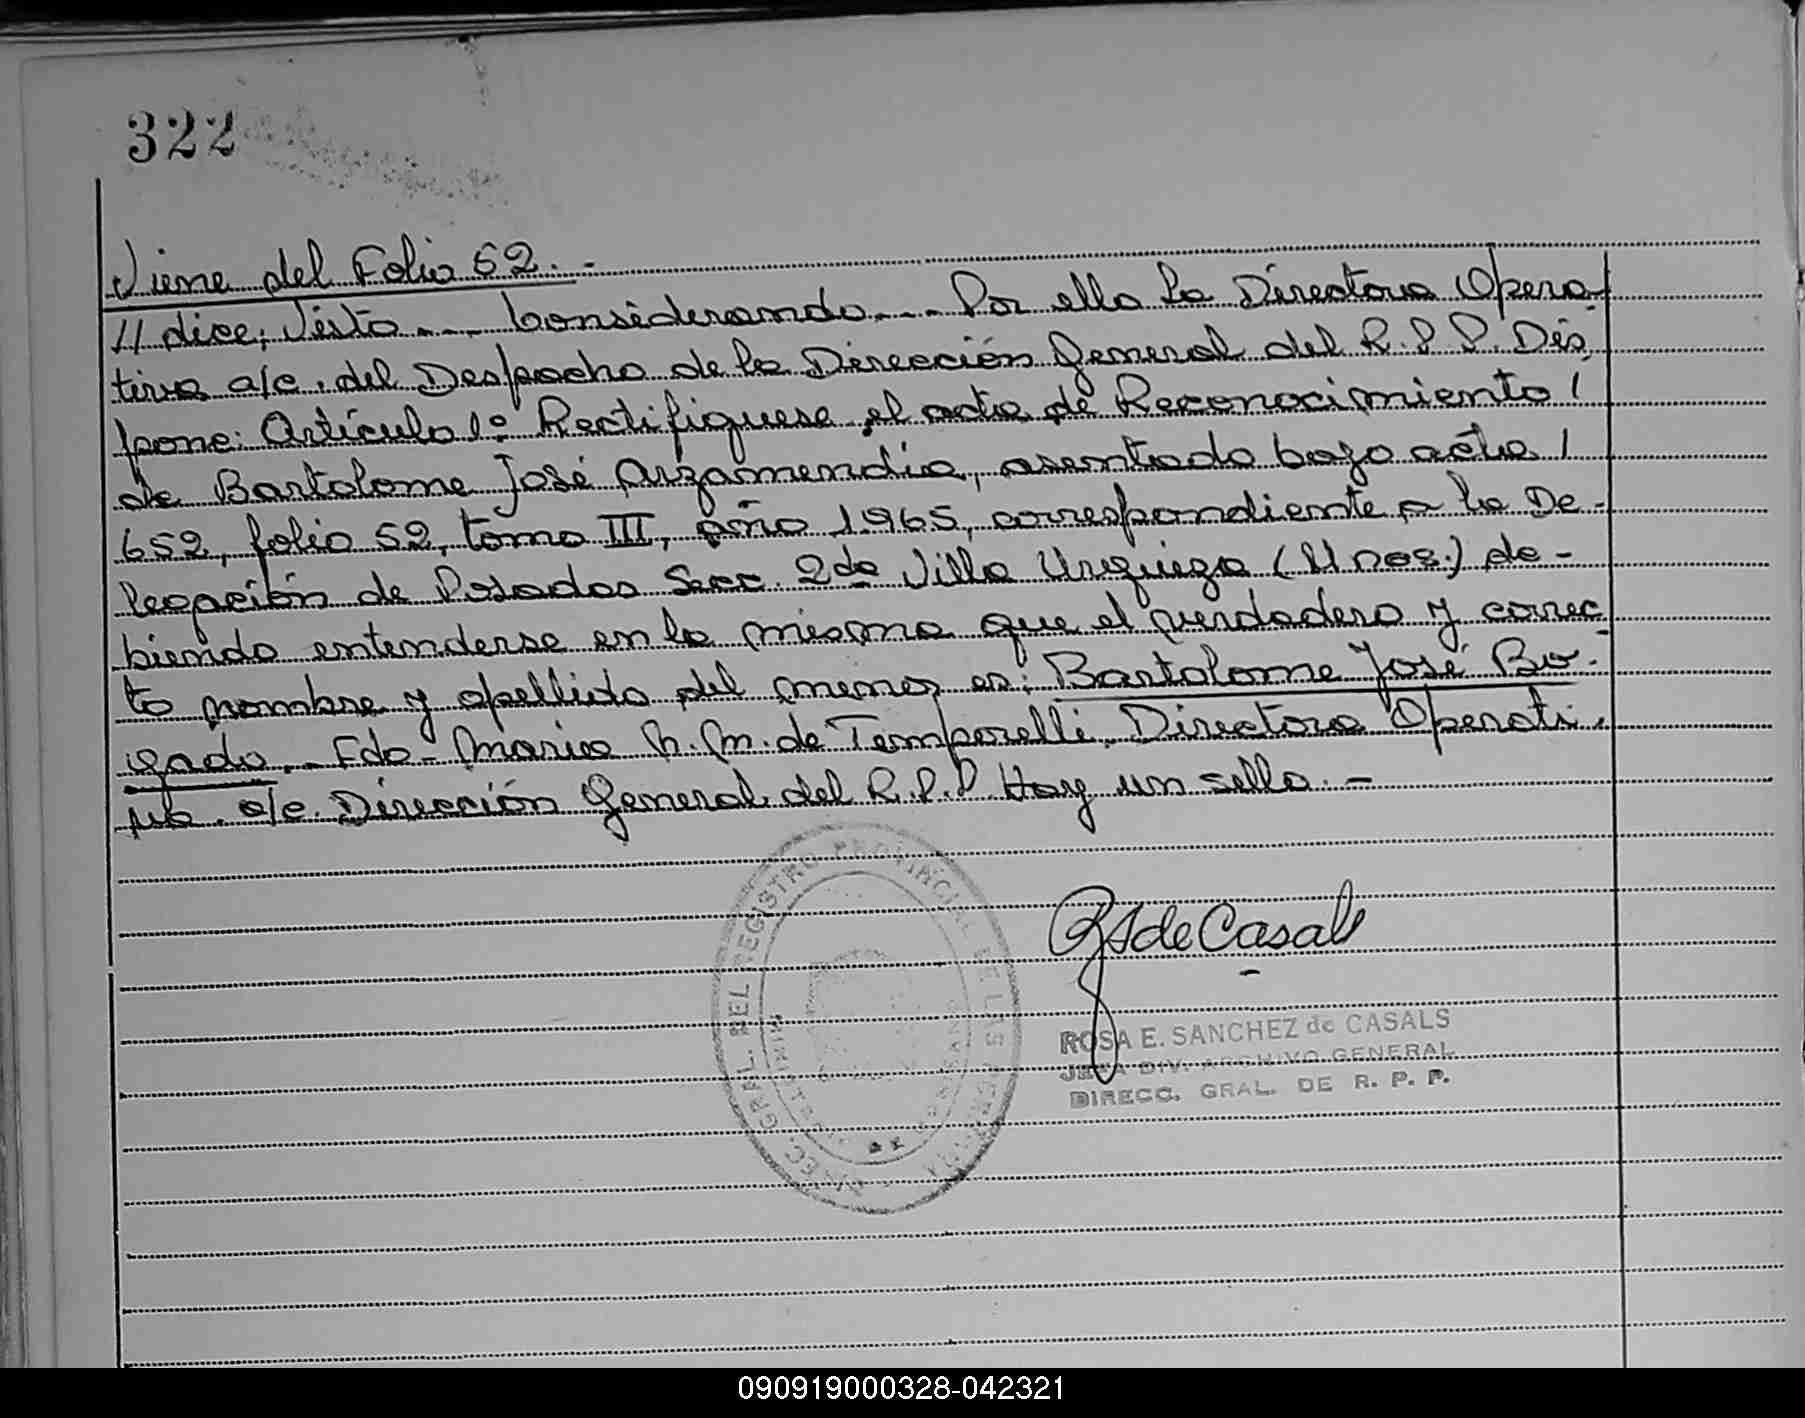 322
Viene del Folio 52.-
// dice: Visto... Considerando... Por ello la Directora Opera-
tiva a/c. del Despacho de la Dirección General del R.P.P. Dis
pone: Artículo 1º Rectifiquese el acta de Reconocimiento /
de Bartolome José Arzamendia, asentado bajo acta /
652, folio 52, tomo III, año 1965, correspondiente a la De-
legación de Posadas Secc. 2da Villa Urquiza (Mnes.) de-
biendo entenderse en la misma que el verdadero y correc
to nombre y apellido del menor es: Bartolome José
gado.- Fdo- Maria h. m. de Temporelli, Directora Operati-
va. a/c. Dirección General del R.P.P. Hay un sello.-
RS de Casals
ROSA E. SANCHEZ de CASALS
JEFA DIV. ARCHIVO GENERAL
DIRECC. GRAL. DE R. P. P.
DIREC. GRAL. DEL REGISTRO PROVINCIAL DE LAS PERSONAS
090919000328-042321